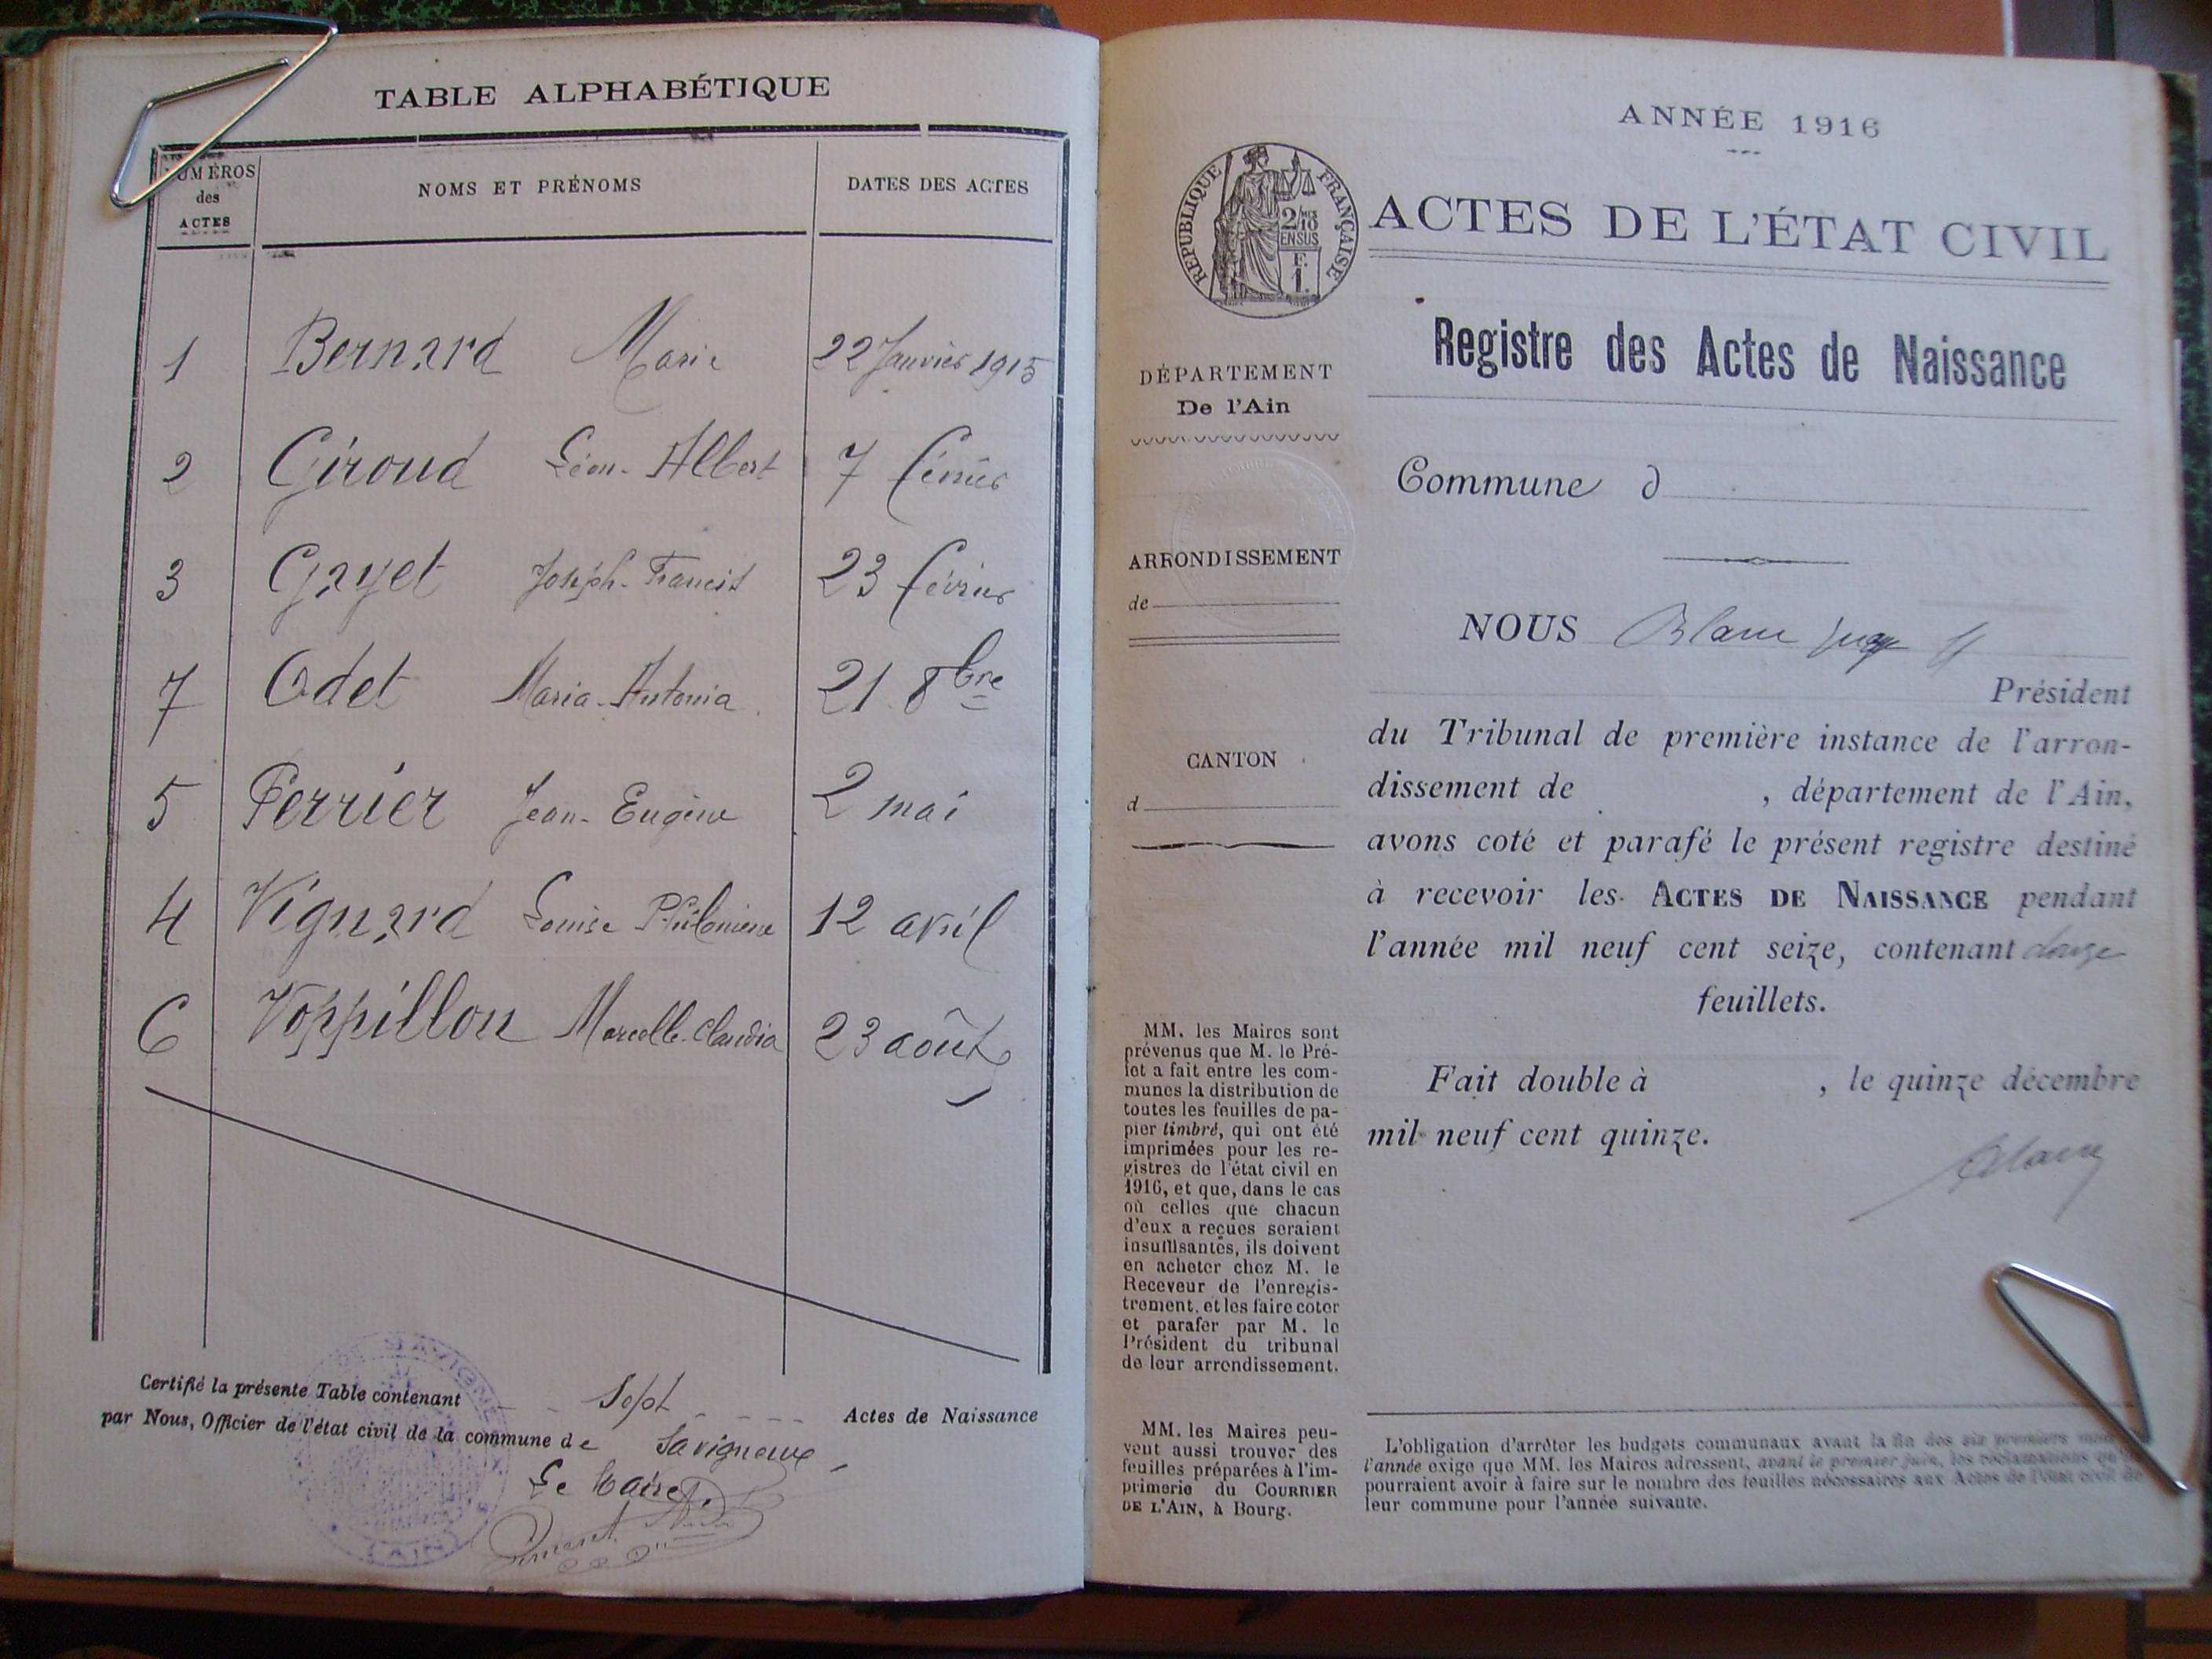 TABLE ALPHABÉTIQUE
NUMÉROS des ACTES
NOMS ET PRÉNOMS
DATES DES ACTES
1 Bernard Marie 22 Janvier 1915
2 Giroud Léon-Albert 7 février
3 Gayet Joseph-Francis 23 février
7 Odet Maria-Antonia 21 8bre
5 Perrier Jean-Eugène 2 mai
4 Vignard Louise Philomène 12 avril
6 Voppillon Marcelle-Claudia 23 août
Certifié la présente Table contenant Sept Actes de Naissance
par Nous, Officier de l'état civil de la commune de Savigneux
Le Maire
AIN
ANNÉE 1916
RÉPUBLIQUE FRANÇAISE
2/10 EN SUS
F. 1.
ACTES DE L'ÉTAT CIVIL
Registre des Actes de Naissance
DÉPARTEMENT
De l'Ain
Commune d
ARRONDISSEMENT
de
NOUS Blanc juge
Président
du Tribunal de première instance de l'arron-
dissement de , département de l'Ain,
avons coté et parafé le présent registre destiné
à recevoir les ACTES DE NAISSANCE pendant
l'année mil neuf cent seize, contenant douze
feuillets.
Fait double à , le quinze décembre
mil neuf cent quinze.
Blanc
CANTON
d
MM. les Maires sont
prévenus que M. le Pré-
fet a fait entre les com-
munes la distribution de
toutes les feuilles de pa-
pier timbré, qui ont été
imprimées pour les re-
gistres de l'état civil en
1916, et que, dans le cas
où celles que chacun
d'eux a reçues seraient
insuffisantes, ils doivent
en acheter chez M. le
Receveur de l'enregis-
trement, et les faire coter
et parafer par M. le
Président du tribunal
de leur arrondissement.
MM. les Maires peu-
vent aussi trouver des
feuilles préparées à l'im-
primerie du COURRIER
DE L'AIN, à Bourg.
L'obligation d'arrêter les budgets communaux avant la fin des six premiers
l'année exige que MM. les Maires adressent, avant le premier juin, les réclamations
pourraient avoir à faire sur le nombre des feuilles nécessaires aux Actes de l'état civil de
leur commune pour l'année suivante.